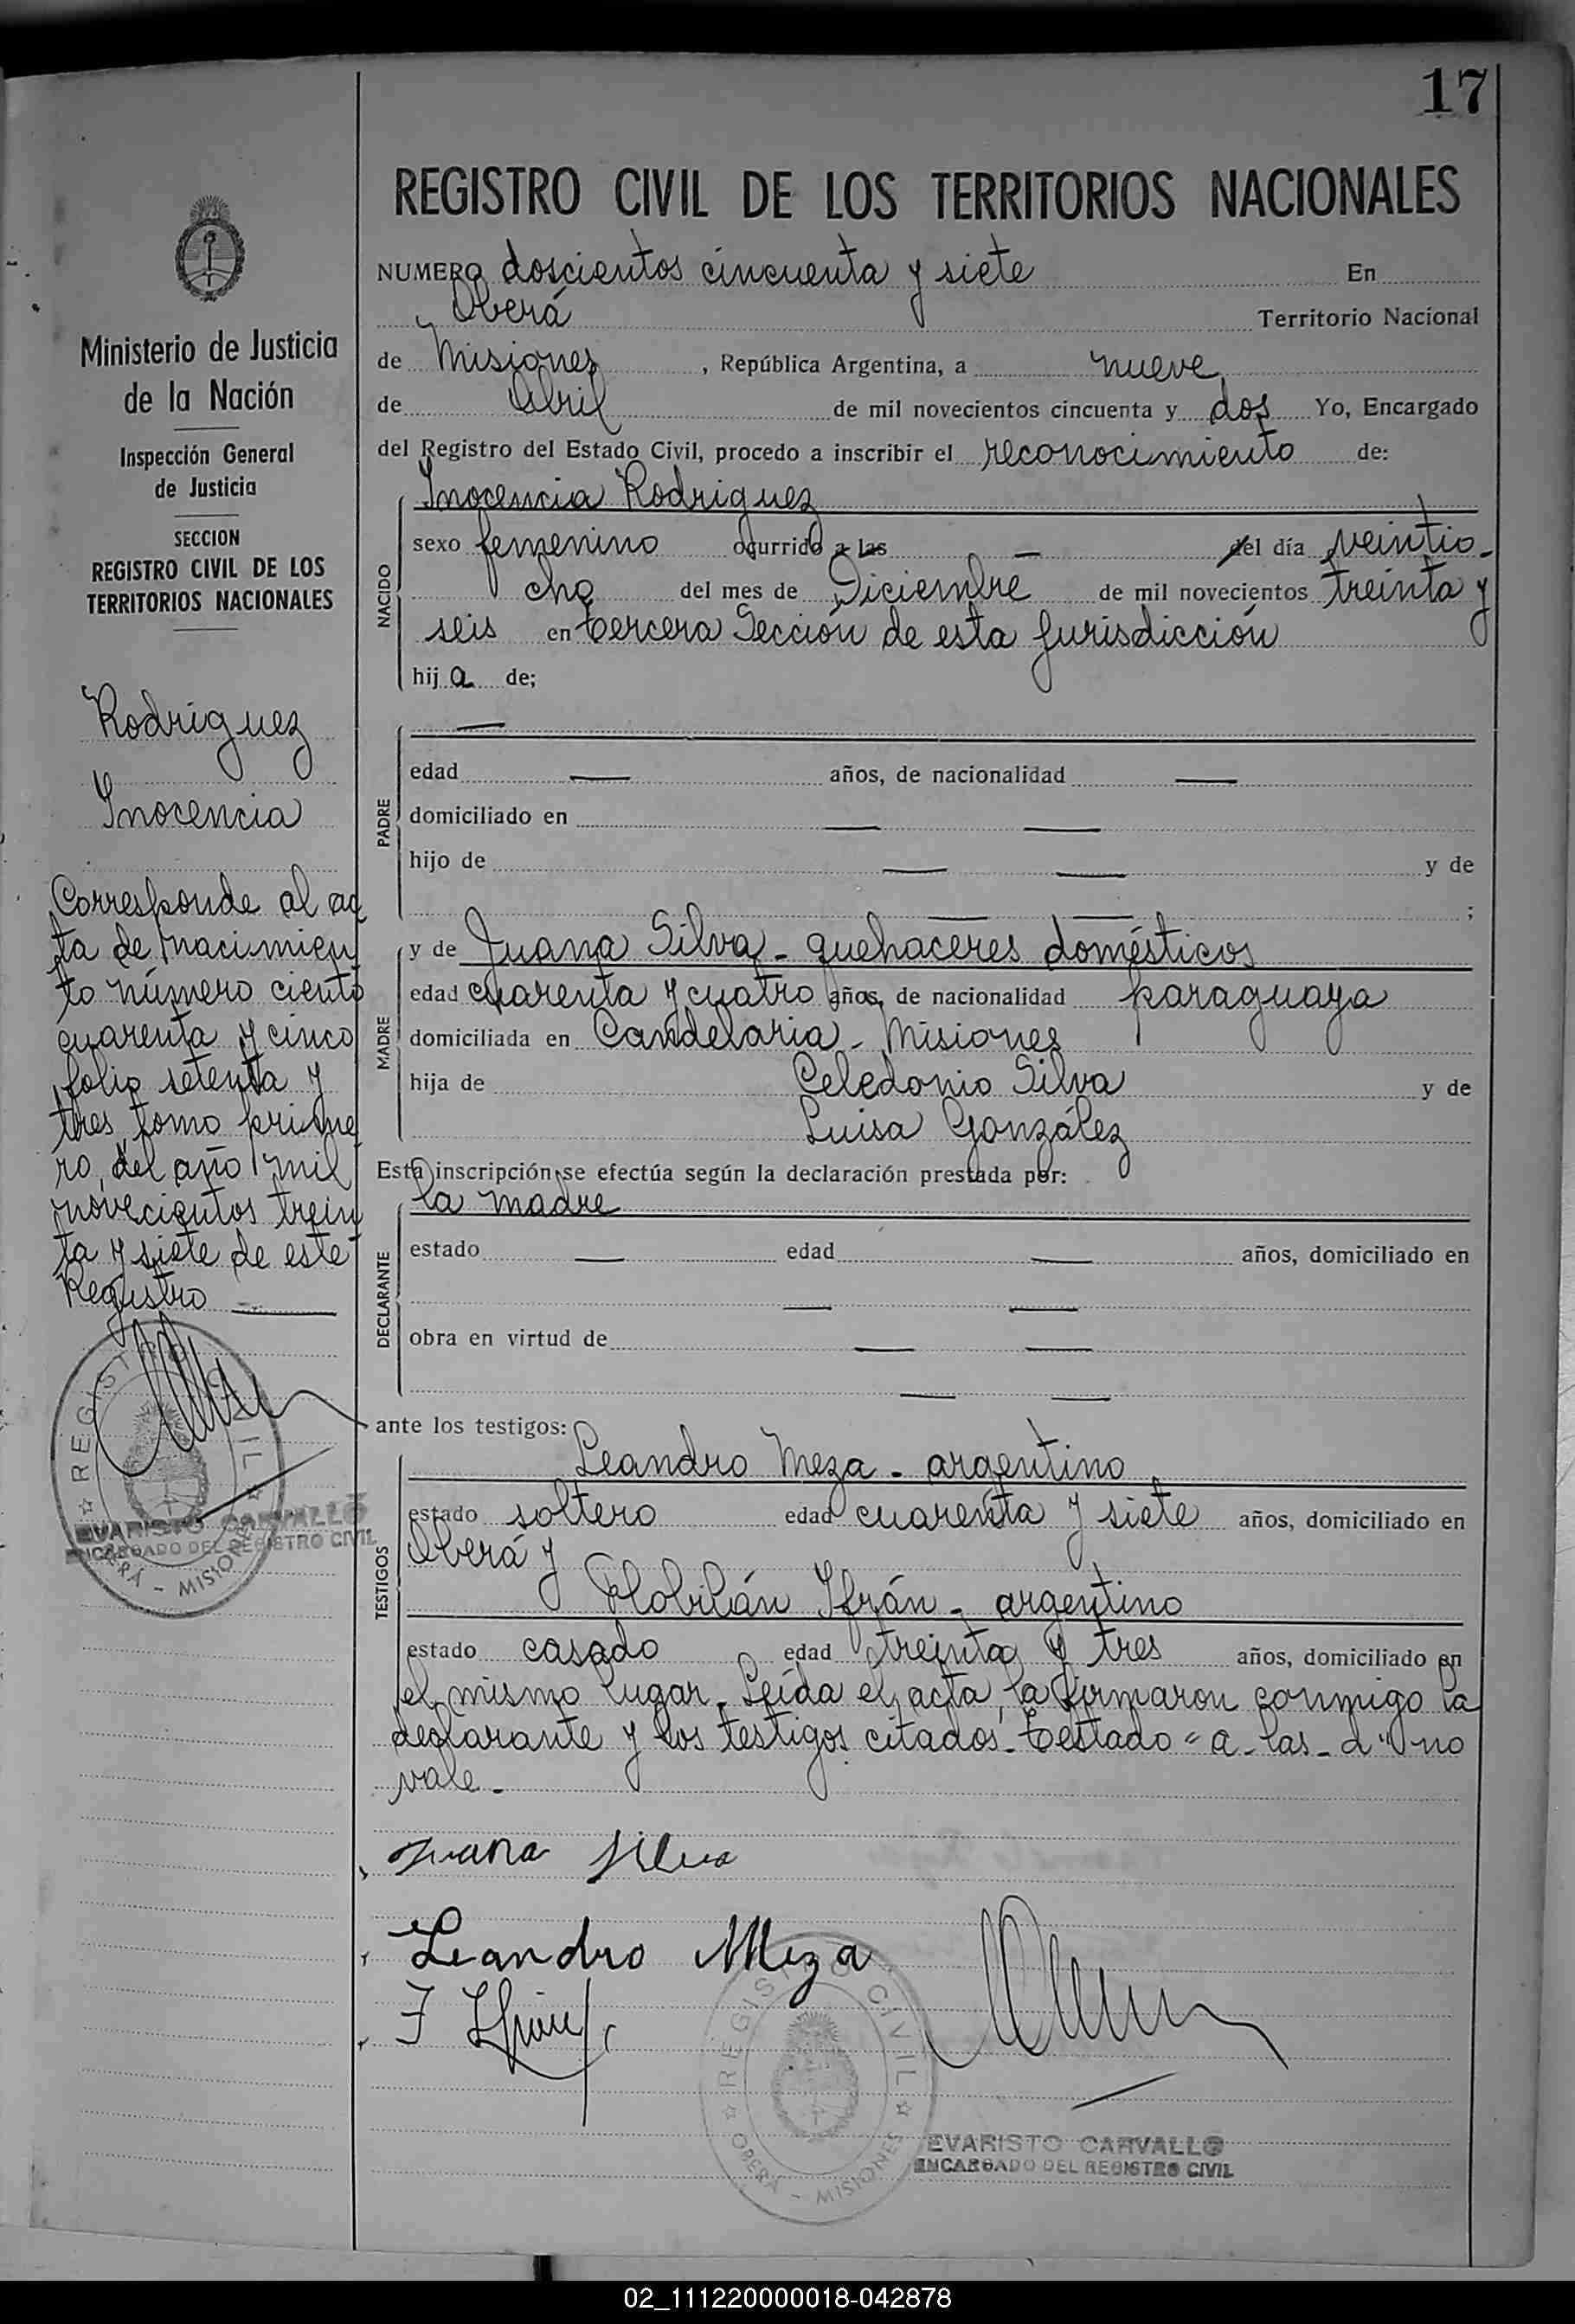 17
REGISTRO CIVIL DE LOS TERRITORIOS NACIONALES
NUMERO doscientos cincuenta y siete En
Oberá Territorio Nacional
de Misiones, República Argentina, a nueve
de Abril de mil novecientos cincuenta y dos Yo, Encargado
del Registro del Estado Civil, procedo a inscribir el reconocimiento de:
NACIDO
Inocencia Rodriguez
sexo femenino ocurrido a las — del día veintio-
cho del mes de Diciembre de mil novecientos treinta y
seis en tercera Sección de esta Jurisdicción
hija de;
PADRE
—
edad — años, de nacionalidad —
domiciliado en — —
hijo de — — y de
— — ;
MADRE
y de Juana Silva - quehaceres domésticos
edad cuarenta y cuatro años, de nacionalidad paraguaya
domiciliada en Candelaria - Misiones
hija de Celedonio Silva y de
Luisa González
Esta inscripción se efectúa según la declaración prestada por:
DECLARANTE
la madre
estado — edad — años, domiciliado en
— —
obra en virtud de — —
— —
ante los testigos:
TESTIGOS
Leandro Meza - argentino
estado soltero edad cuarenta y siete años, domiciliado en
Oberá y
Flobilán Ifrán - argentino
estado casado edad treinta y tres años, domiciliado en
el mismo lugar. Leída el acta, la firmaron conmigo la
declarante y los testigos citados. Testado "a-las-d" no
vale.-
Juana Silva
Leandro Meza
F Ifrán
REGISTRO CIVIL
OBERÁ - MISIONES
EVARISTO CARVALLO
ENCARGADO DEL REGISTRO CIVIL
Ministerio de Justicia
de la Nación
Inspección General
de Justicia
SECCION
REGISTRO CIVIL DE LOS
TERRITORIOS NACIONALES
Rodriguez
Inocencia
Corresponde al ac
ta de nacimien
to número ciento
cuarenta y cinco
folio setenta y
tres tomo prime
ro, del año mil
novecientos trein
ta y siete de este
Registro —
REGISTRO CIVIL
OBERÁ - MISIONES
EVARISTO CARVALLO
ENCARGADO DEL REGISTRO CIVIL
02_111220000018-042878